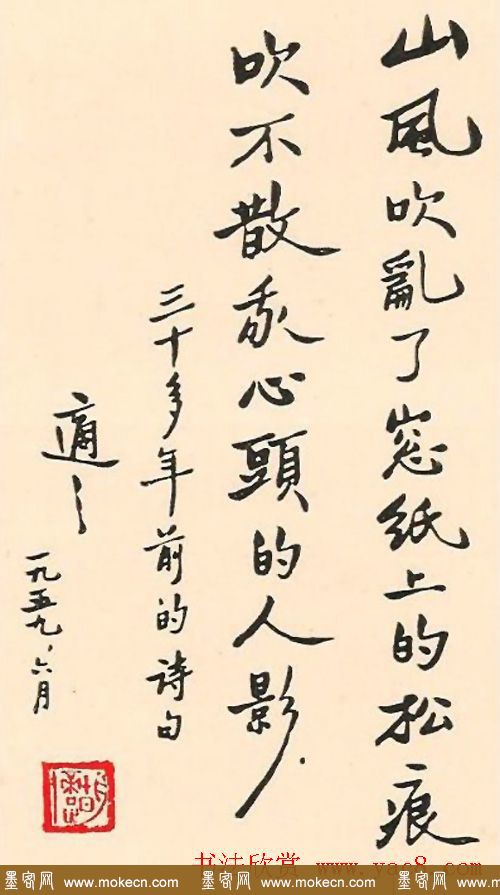 山風吹亂了窓紙上的松痕
吹不散我心頭的人影.
三十多年前的詩句
適之
一九五九、六月
书法欣赏 www.yac8.com
墨客网 www.mokecn.com 墨客网 www.mokecn.com 墨客网 www.mokecn.com